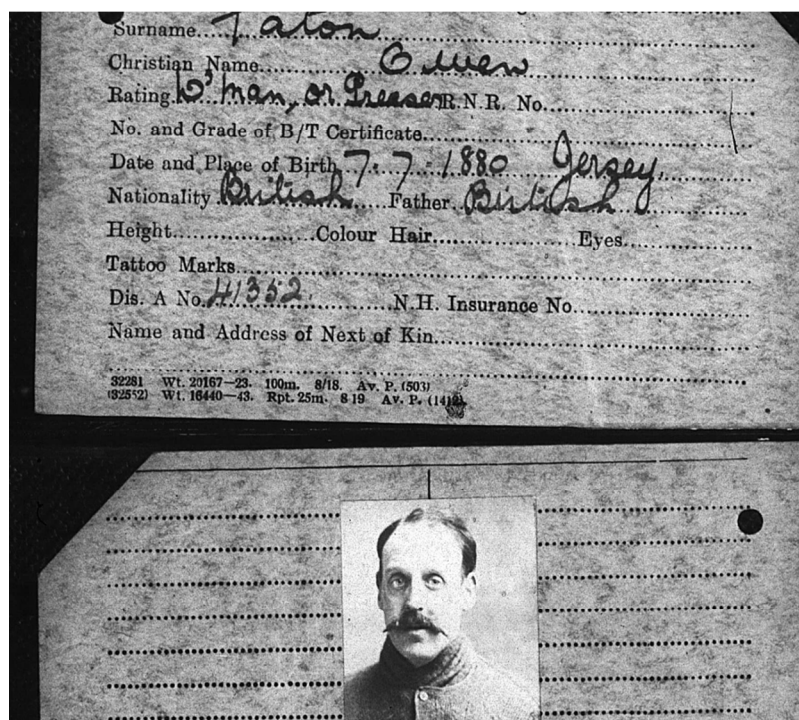 Surname....Taton
Christian Name....Owen
Rating W'man, or Greaser R.N.R. No.
No. and Grade of B/T Certificate
Date and Place of Birth 7.7.1880 Jersey.
Nationality British Father British
Height Colour Hair Eyes
Tattoo Marks
Dis. A No. 41352 N.H. Insurance No.
Name and Address of Next of Kin
32281 Wt. 20167—23. 100m. 8/18. Av. P. (503)
(32552) Wt. 16440—43. Rpt. 25m. 8 19 Av. P. (1412).